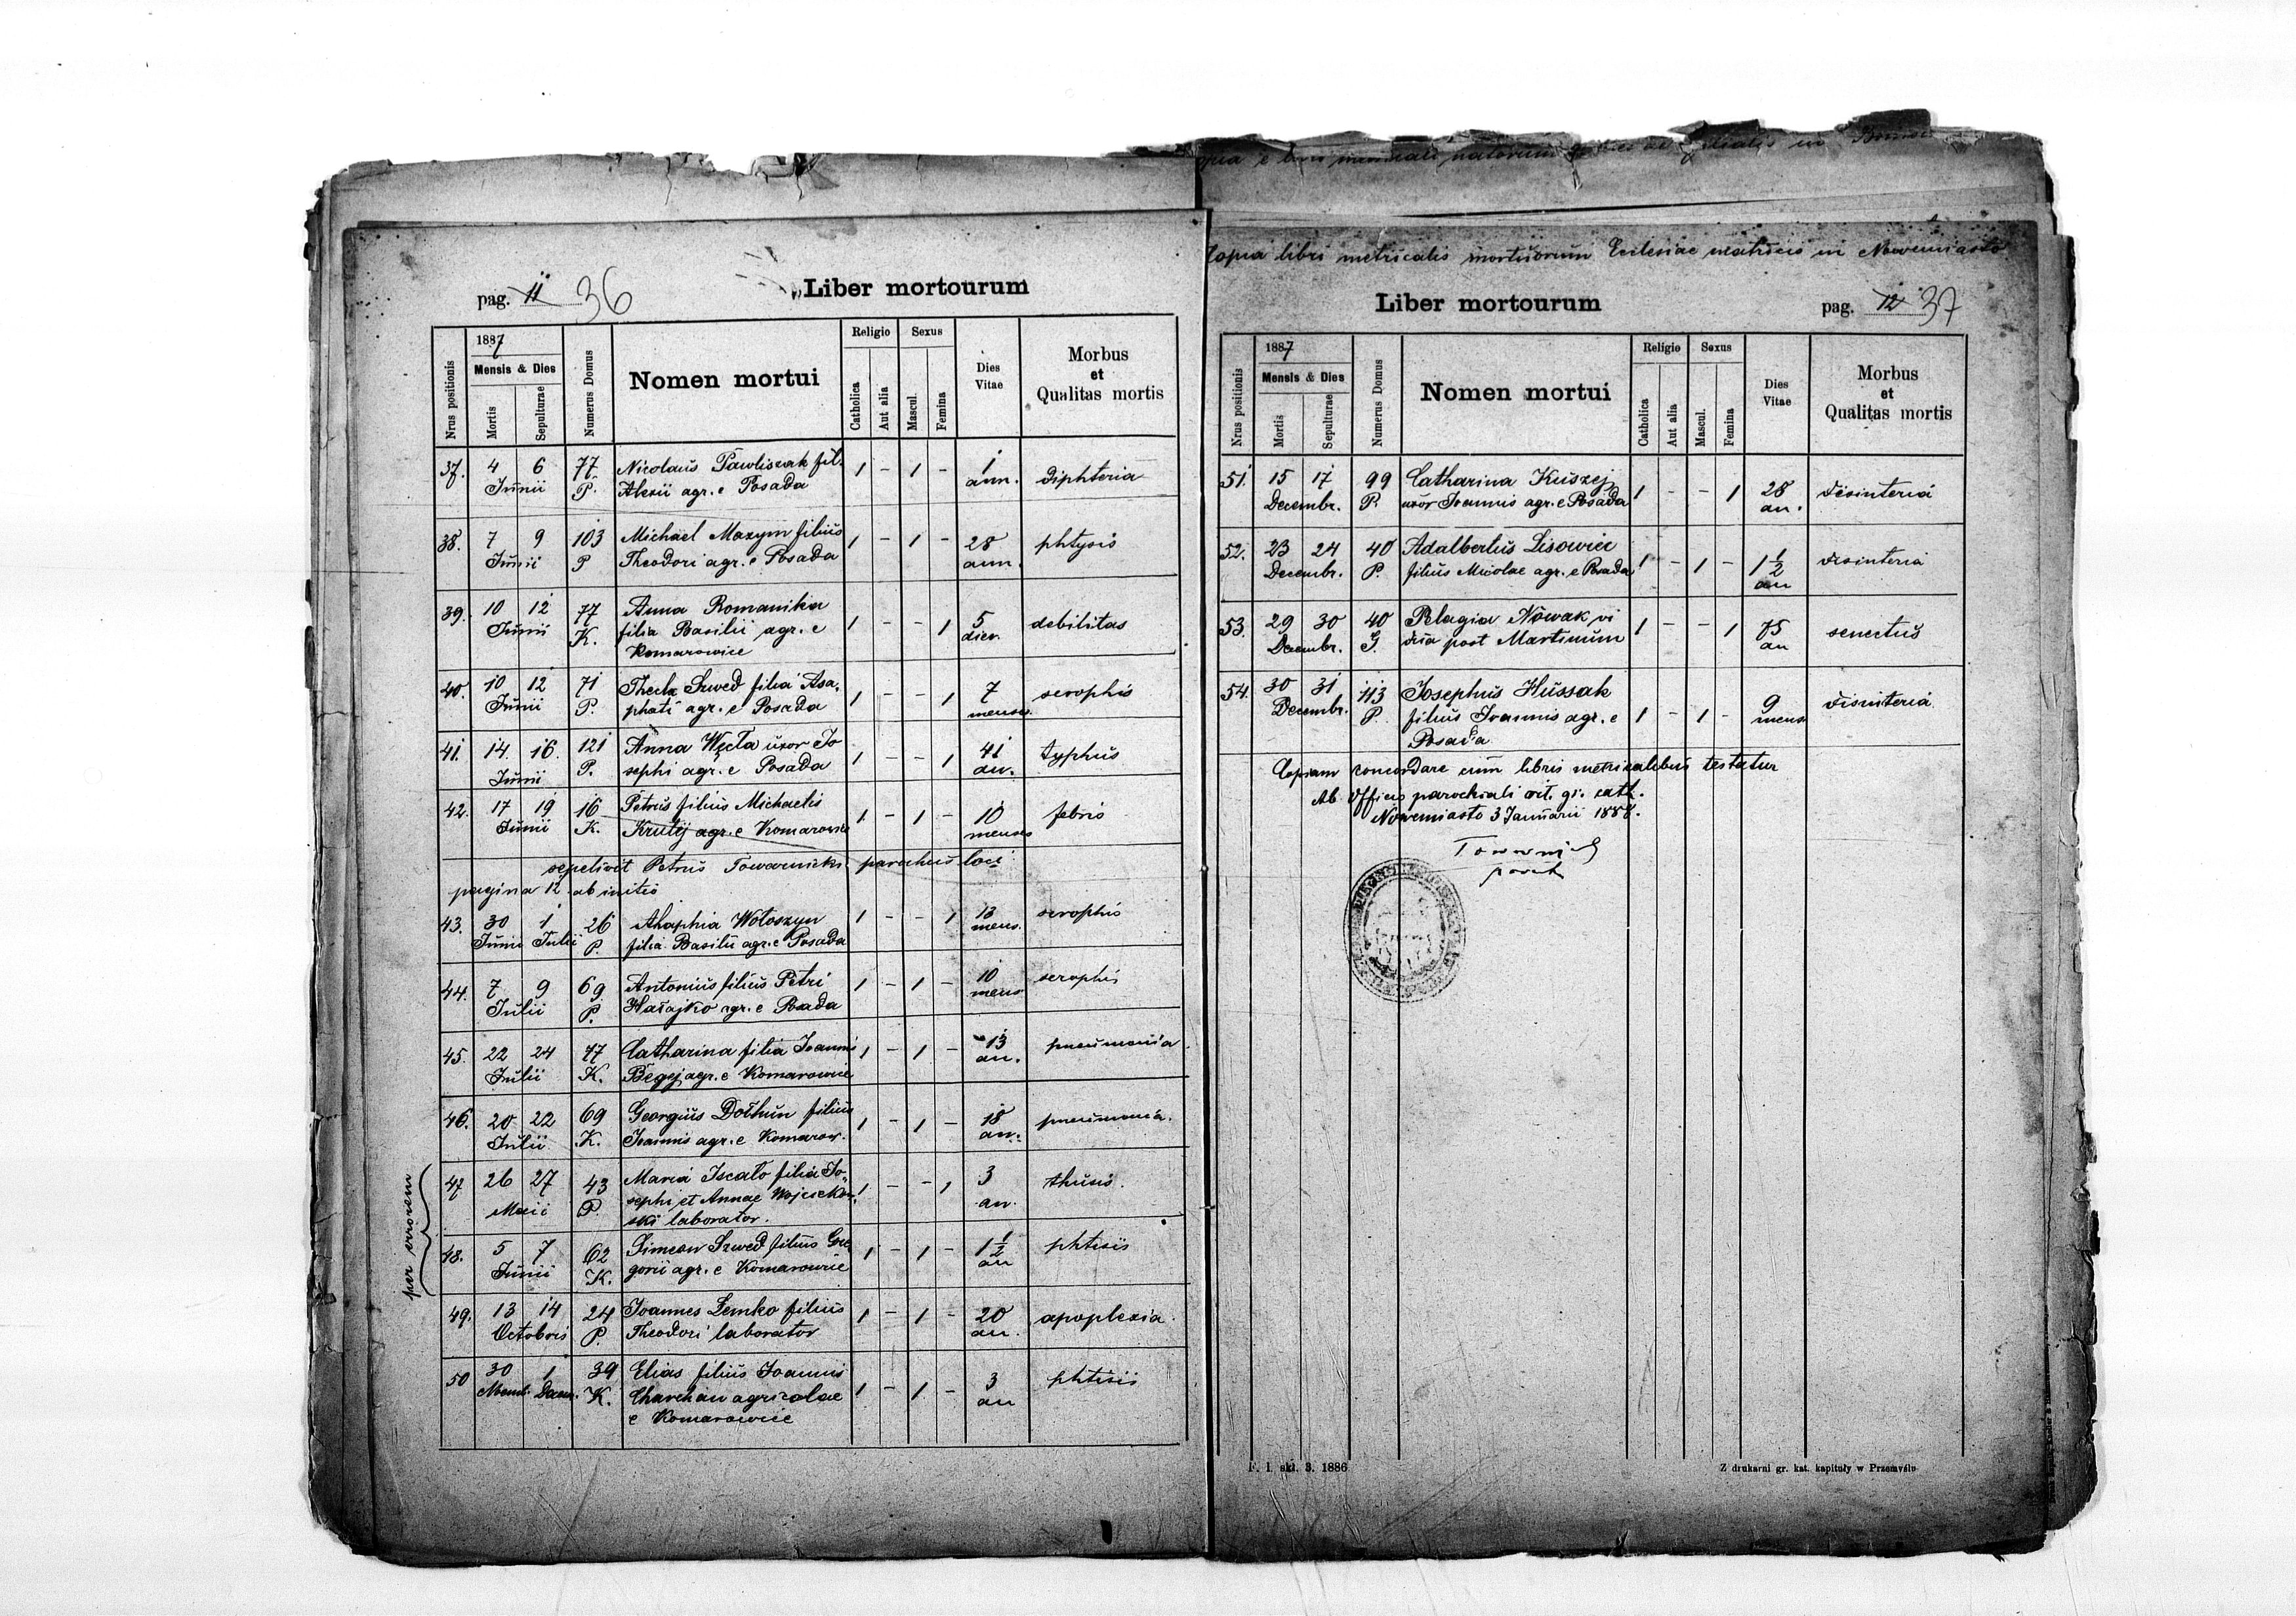 pag. 11 36
Liber mortourum
Nrus positionis
1887
Mensis & Dies
Mortis
Sepulturae
Numerus Domus
Nomen mortui
Religio
Catholica
Aut alia
Sexus
Mascul.
Femina
Dies
Vitae
Morbus
et
Qualitas mortis
37. 4 6 77 Nicolaus Pawliszak fil. 1 - 1 - 1 diphteria
Junii P. Alexii agr. e Posada ann.
38. 7 9 103 Michael Mazym filius 1 - 1 - 28 phtysis
Junii P Theodori agr. e Posada ann.
39. 10 12 77 Anna Romanika 1 - - 1 5 debilitas
Junii K. filia Basilii agr. e dier.
Komarowice
40. 10 12 71 Thecla Szwed filia Asa- 1 - - 1 7 scrophis
Junii P. phati agr. e Posada menses
41. 14. 16. 121 Anna Węcła uxor Jo 1 - - 1 41 typhus
Junii P. sephi agr. e Posada an.
42. 17 19 16 Petrus filius Michaelis 1 - 1 - 10 febris
Junii K. Krutij agr. e Komarowice menses
sepelivit Petrus Towarnicki parochus loci
pagina 12 ab initio
43. 30 1 26 Ahaphia Wołoszyn 1 - - 1 13 scrophis
Junii Julii P. filia Basilii agr. e Posada mens.
44. 7 9 69 Antonius filius Petri 1 - 1 - 10 scrophis
Julii P. agr. e Posada mens
45. 22 24 77 Catharina filia Joannis 1 - 1 - 13 pneumonia.
Julii K. Begej agr. e Komarowice an.
46. 20 22 69 Georgius filius 1 - 1 - 18 pneumonia.
Julii K. Joannis agr. e Komarow. an.
per errorem
47 26 27 43 Maria filia Jo- 1 - - 1 3
Maii P. sephi et Annae an.
ski laborator.
48. 5 7 62 Simeon Szwed filius Gre 1 - 1 - 1 1/2 phtisis
Junii K. gorii agr. e Komarowice an
49. 13 14 24 Joannes Lemko filius 1 - 1 - 20 apoplexia.
Octobris P. Theodori laborator an.
50 30 1 39 Elias filius Joannis 1 - 1 - 3 phtisis
K. agricolae an
e Komarowice
Copia libri metricalis mortuorum Ecclesiae matricis in Nowemiasto
Liber mortourum
pag. 12 37
Nrus positionis
1887
Mensis & Dies
Mortis
Sepulturae
Numerus Domus
Nomen mortui
Religio
Catholica
Aut alia
Sexus
Mascul.
Femina
Dies
Vitae
Morbus
et
Qualitas mortis
51. 15 17 99 Catharina Kuszej 1 - - 1 28 disinteria
Decembr. P. uxor Joannis agr. e Posada an.
52. 23 24 40 Adalbertus Lisowiec 1 - 1 - 1 1/2 disinteria
Decembr. P. filius Nicolae agr. e Posada an
53. 29 30 40 Pelagia Nowak vi 1 - - 1 75 senectus
Decembr. G. dua post Martinum an
54. 30 31 113 Josephus Hussak 1 - 1 - 9 disinteria
Decembr. P. filius Joannis agr. e mens
Posada
Copiam concordare cum libris metricalibus testatur
Ab officio parochiali rit. gr. cath.
Nowemiasto 3 Januarii 1888.
F. 1. skł. 3. 1886
Z drukarni gr. kat. kapituły w Przemyślu